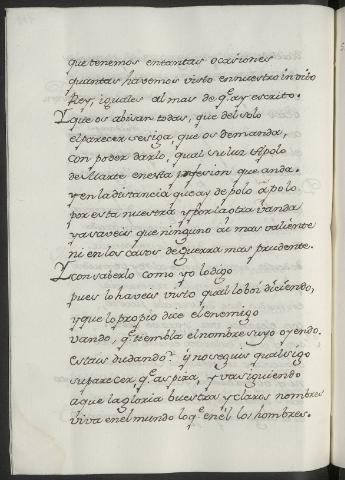 que tenemos en tantas ocasiones
quantas havemos visto en nuestro invito
Rey, iguales al mas de q.e ay escrito.
Y que os abisan todas, que del solo
el parecer se siga, que os demanda,
con poder darlo, qual su luz Apolo
de Marte en esta infesion que anda.
y en la distancia que ay de polo à polo
por esta nuestra y por la otra vanda
ya saveis que ninguno ai mas valiente
ni en los casos de guerra mas prudente.
Y con saberlo como yo lo digo
pues lo haveis visto qual lo boi diciendo,
y que lo propio dice el enemigo
vando, q.e tiembla el nombre suyo oyendo.
estais dudando? y no seguis qual sigo
su parecer q.e aspira, y va siguiendo
a que la gloria buestra y claros nombres
viva en el mundo lo q.e en él los hombres.